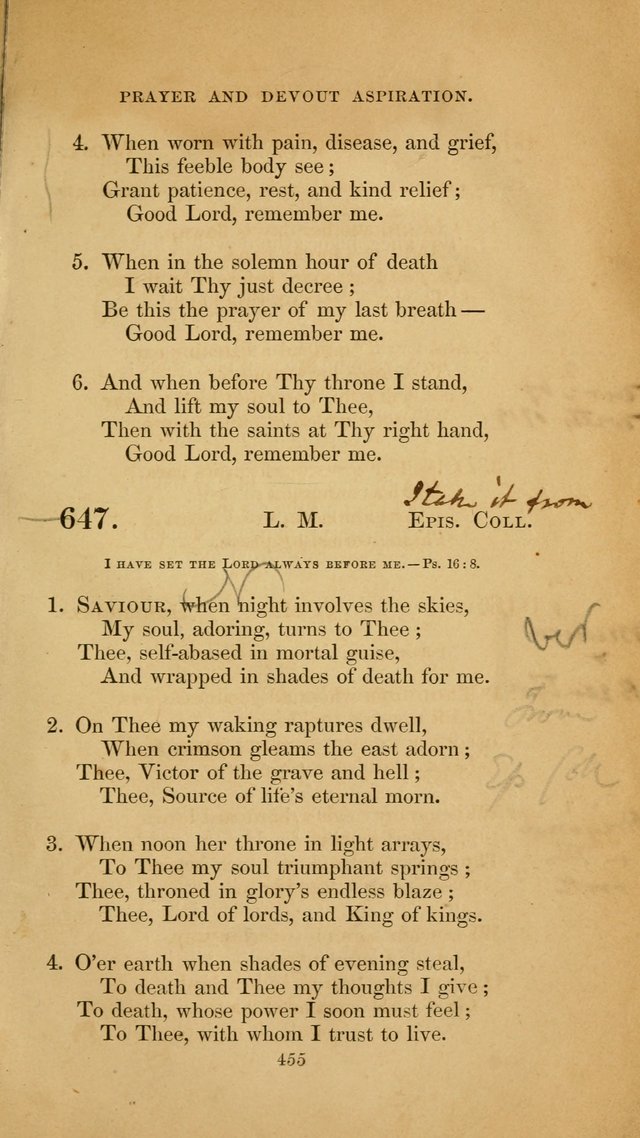 PRAYER AND DEVOUT ASPIRATION.
4. When worn with pain, disease, and grief,
This feeble body see;
Grant patience, rest, and kind relief;
Good Lord, remember me.
5. When in the solemn hour of death
I wait Thy just decree;
Be this the prayer of my last breath—
Good Lord, remember me.
6. And when before Thy throne I stand,
And lift my soul to Thee,
Then with the saints at Thy right hand,
Good Lord, remember me.
I take it from
647. L. M. EPIS. COLL.
I HAVE SET THE LORD ALWAYS BEFORE ME.—Ps. 16:8.
1. SAVIOUR, when night involves the skies,
My soul, adoring, turns to Thee;
Thee, self-abased in mortal guise,
And wrapped in shades of death for me.
from
Ep Coll
2. On Thee my waking raptures dwell,
When crimson gleams the east adorn;
Thee, Victor of the grave and hell;
Thee, Source of life's eternal morn.
3. When noon her throne in light arrays,
To Thee my soul triumphant springs;
Thee, throned in glory's endless blaze;
Thee, Lord of lords, and King of kings.
4. O'er earth when shades of evening steal,
To death and Thee my thoughts I give;
To death, whose power I soon must feel;
To Thee, with whom I trust to live.
455